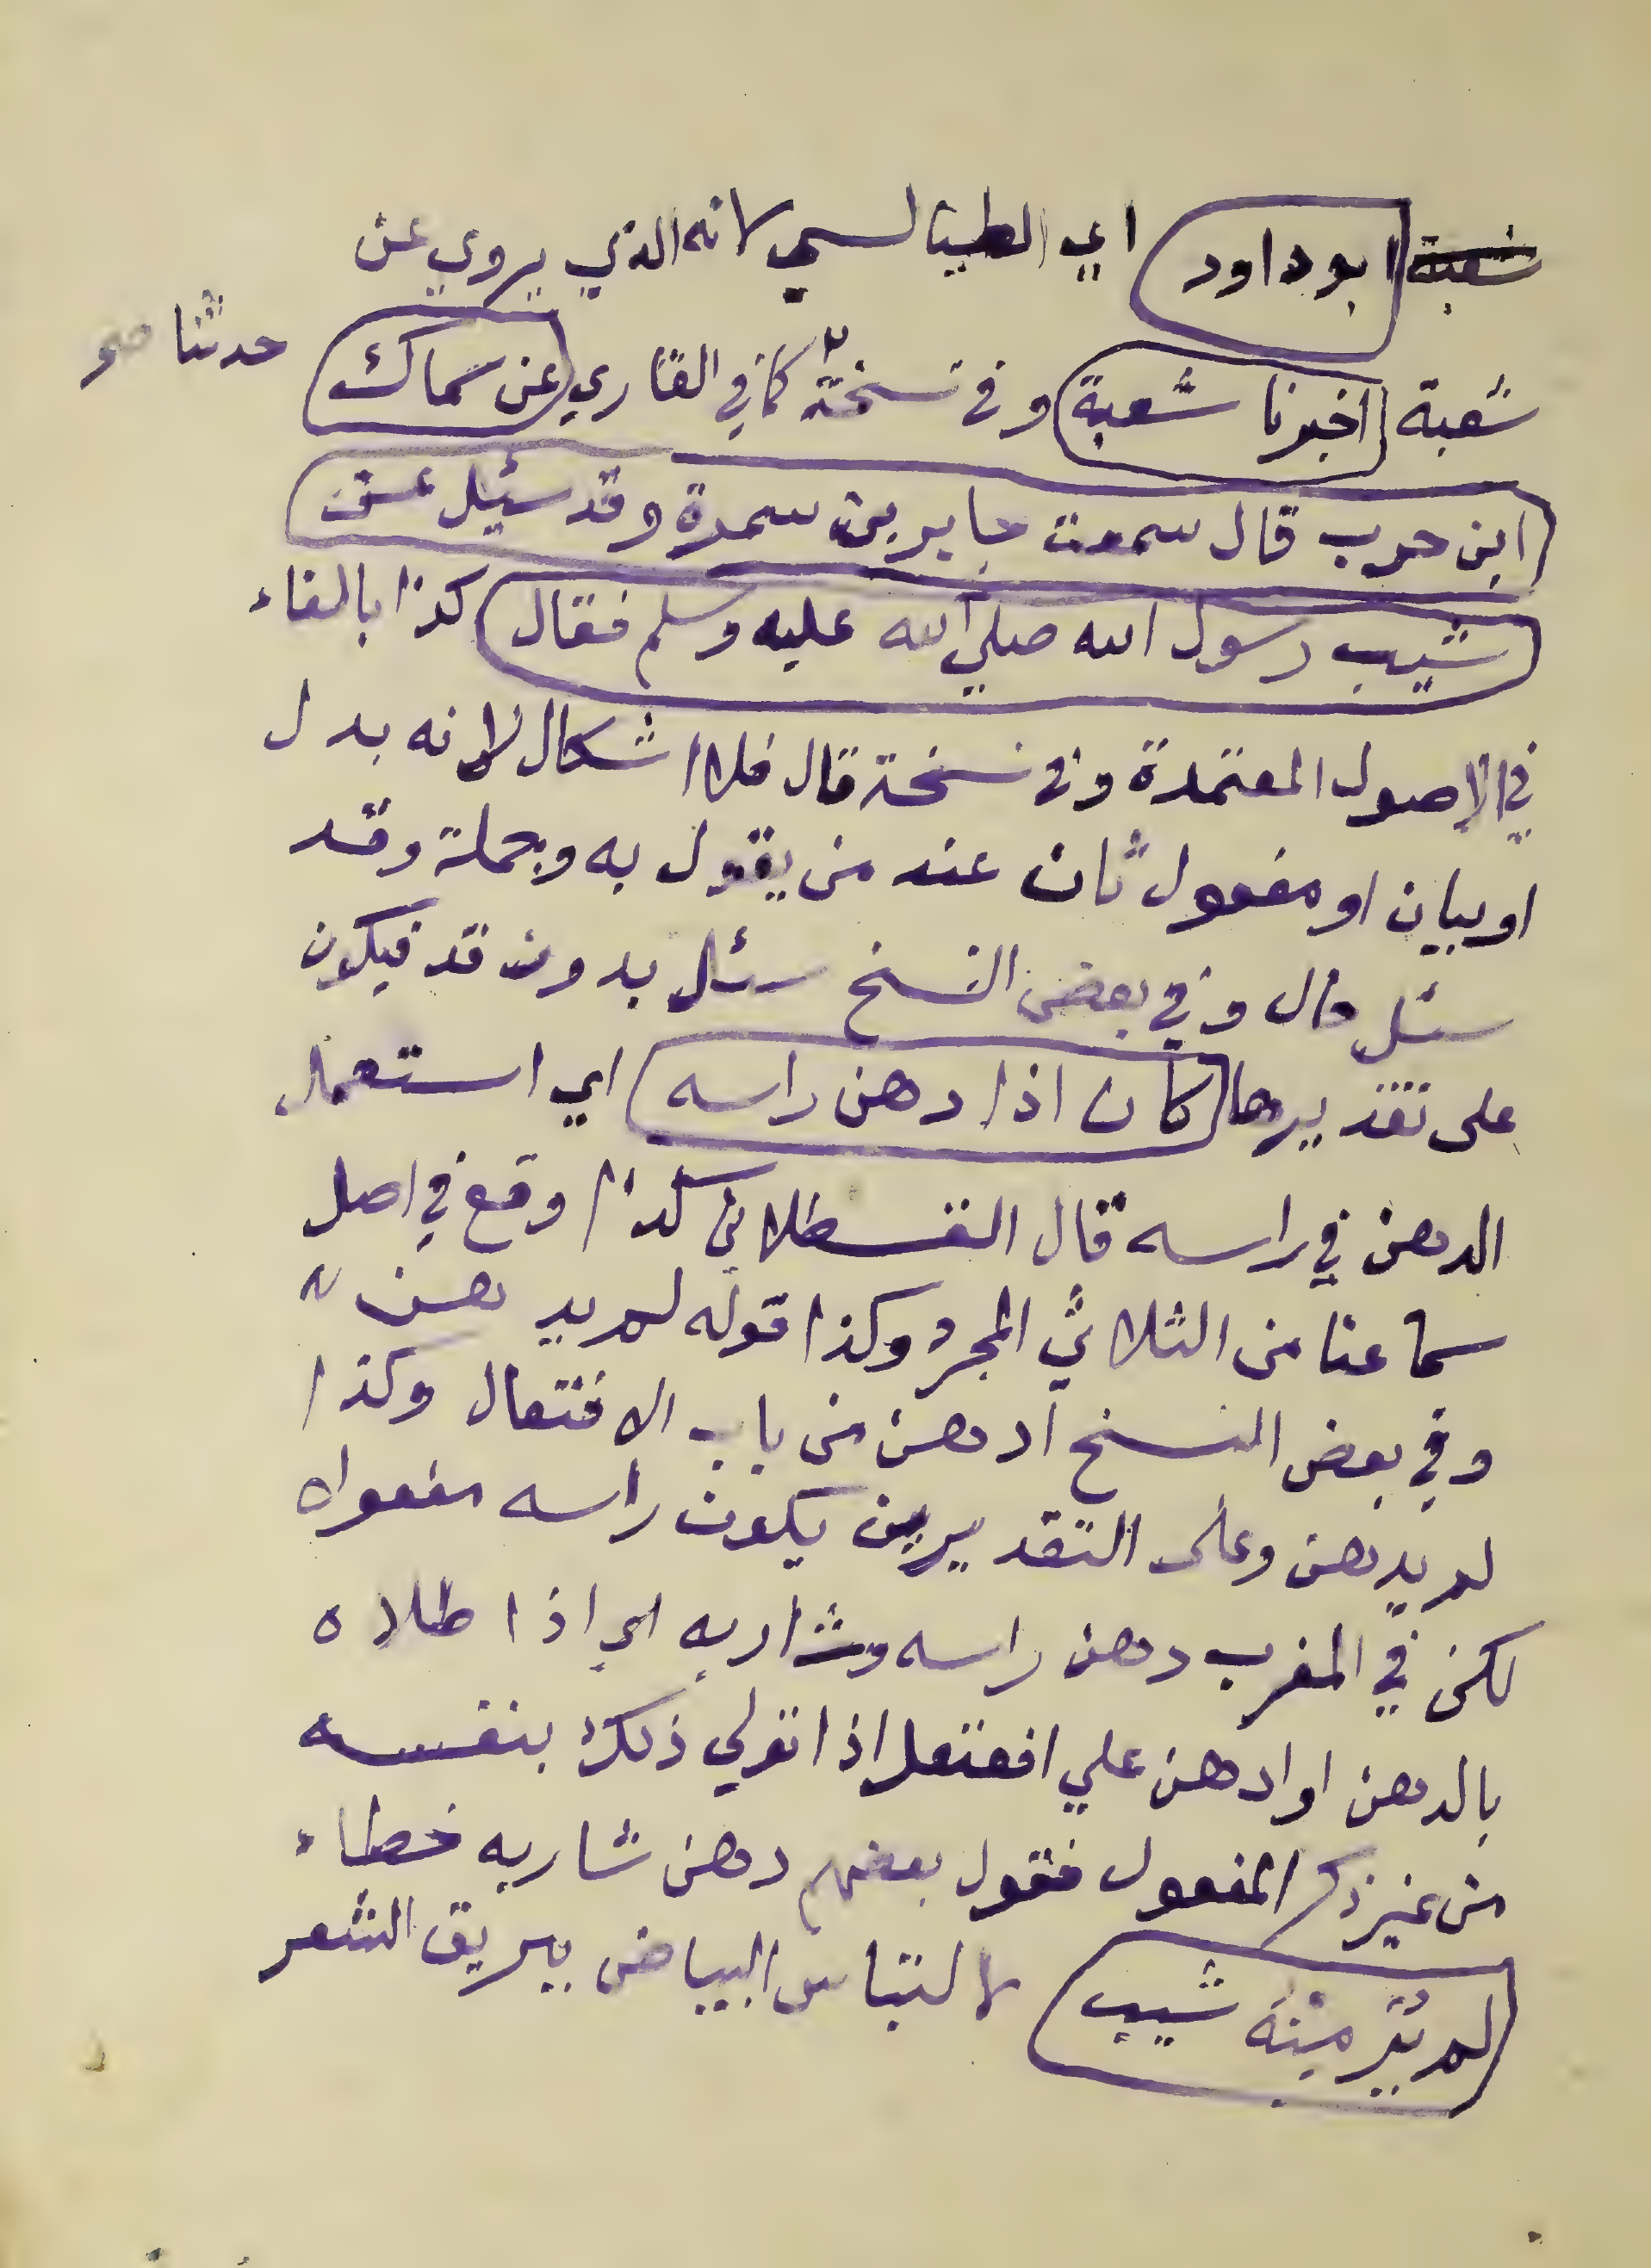 شعبة ابوداود اي الطيالسي لانه الذي يروي عن
شعبة اخبرنا شعبة وفي نسخة كما في القاري عن سماك
حدثنا صح
ابن حرب قال سمعت جابر بن سمرة وقد سئيل عن
شيب رسول الله صلي الله عليه وسلم فقال كذا بالفاء
في الاصول المعتمدة وفي نسخة قال فلا اشكال لانه بدل
او بيان او مفعول ثان عند من يقول به وجملة وقد
سئل حال وفي بعض النسخ سئل بدون قد فيكون
على تقديرها كان اذا دهن راسه اي استعمل
الدهن في راسه قال القسطلاني كذا وقع في اصل
سماعنا من الثلاثي المجرد وكذا قوله لم يدهن
وفي بعض النسخ ادهن من باب الافتعال وكذا
لم يدهن وعلى التقديرين يكون راسه مفعولا
لكن في المغرب دهن راسه وشاربه اي اذا طلاه
بالدهن او ادهن علي افتعل اذا تولي ذلك بنفسه
من غير ذكر المفعول فقول بعضهم دهن شاربه خطاء
لم يُرَ مِنْهُ شيب لالتباس البياض ببريق الشعر